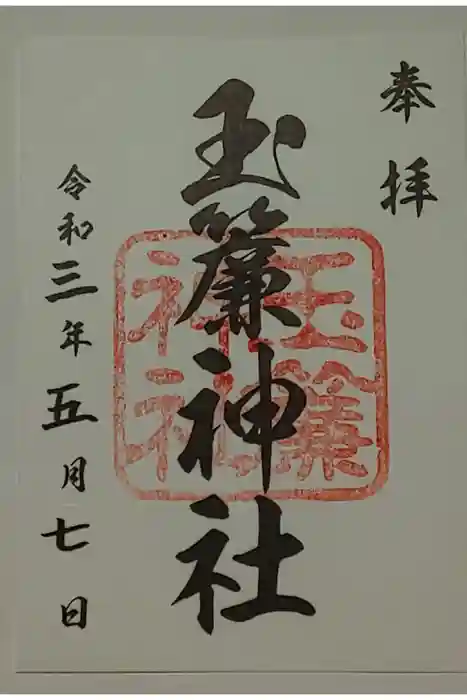 奉拝
玉簾神社
玉簾
神社
令和三年五月七日